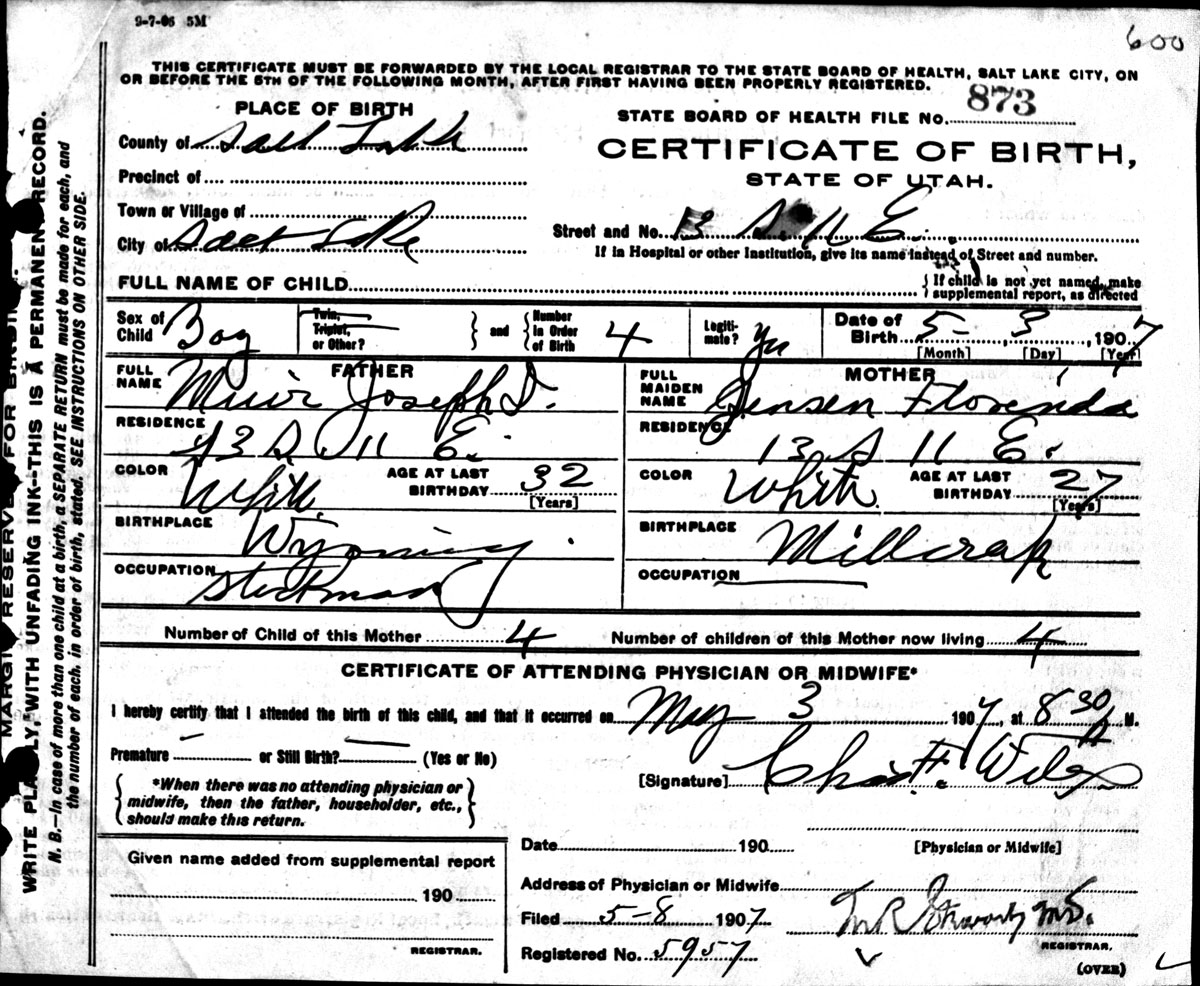 9-7-06 5M
600
THIS CERTIFICATE MUST BE FORWARDED BY THE LOCAL REGISTRAR TO THE STATE BOARD OF HEALTH, SALT LAKE CITY, ON
OR BEFORE THE 5TH OF THE FOLLOWING MONTH, AFTER FIRST HAVING BEEN PROPERLY REGISTERED.
PLACE OF BIRTH
STATE BOARD OF HEALTH FILE NO. 873
County of Salt Lake
CERTIFICATE OF BIRTH,
Precinct of
STATE OF UTAH.
Town or Village of
Street and No. 13 S. 11 E.
City of Salt Lake
If in Hospital or other Institution, give its name instead of Street and number.
FULL NAME OF CHILD
{ If child is not yet named, make
supplemental report, as directed
Sex of Child Boy
Twin, Triplet, or Other? } and { Number in Order of Birth 4
Legiti-mate? Yes
Date of Birth 5 - 3, 1907
[Month] [Day] [Year]
FATHER
FULL NAME Muir Joseph
RESIDENCE 13 S. 11 E.
COLOR White
AGE AT LAST BIRTHDAY 32
[Years]
BIRTHPLACE Wyoming
OCCUPATION Stockman
MOTHER
FULL MAIDEN NAME Jensen Florinda
RESIDENCE 13 S 11 E.
COLOR White
AGE AT LAST BIRTHDAY 27
[Years]
BIRTHPLACE
OCCUPATION
Number of Child of this Mother 4 Number of children of this Mother now living 4
CERTIFICATE OF ATTENDING PHYSICIAN OR MIDWIFE*
I hereby certify that I attended the birth of this child, and that it occurred on May 3 1907, at 8 30 M.
Premature — or Still Birth? — (Yes or No)
[Signature] Chas. H.
{ *When there was no attending physician or
midwife, then the father, householder, etc.,
should make this return. }
Given name added from supplemental report
190
REGISTRAR.
Date 190
[Physician or Midwife]
Address of Physician or Midwife
Filed 5-8 1907
M.D.
REGISTRAR.
Registered No. 5957
(OVER)
MARGIN RESERVED FOR BINDING.
WRITE PLAINLY, WITH UNFADING INK--THIS IS A PERMANENT RECORD.
N. B.—In case of more than one child at a birth, a SEPARATE RETURN must be made for each, and
the number of each, in order of birth, stated. SEE INSTRUCTIONS ON OTHER SIDE.